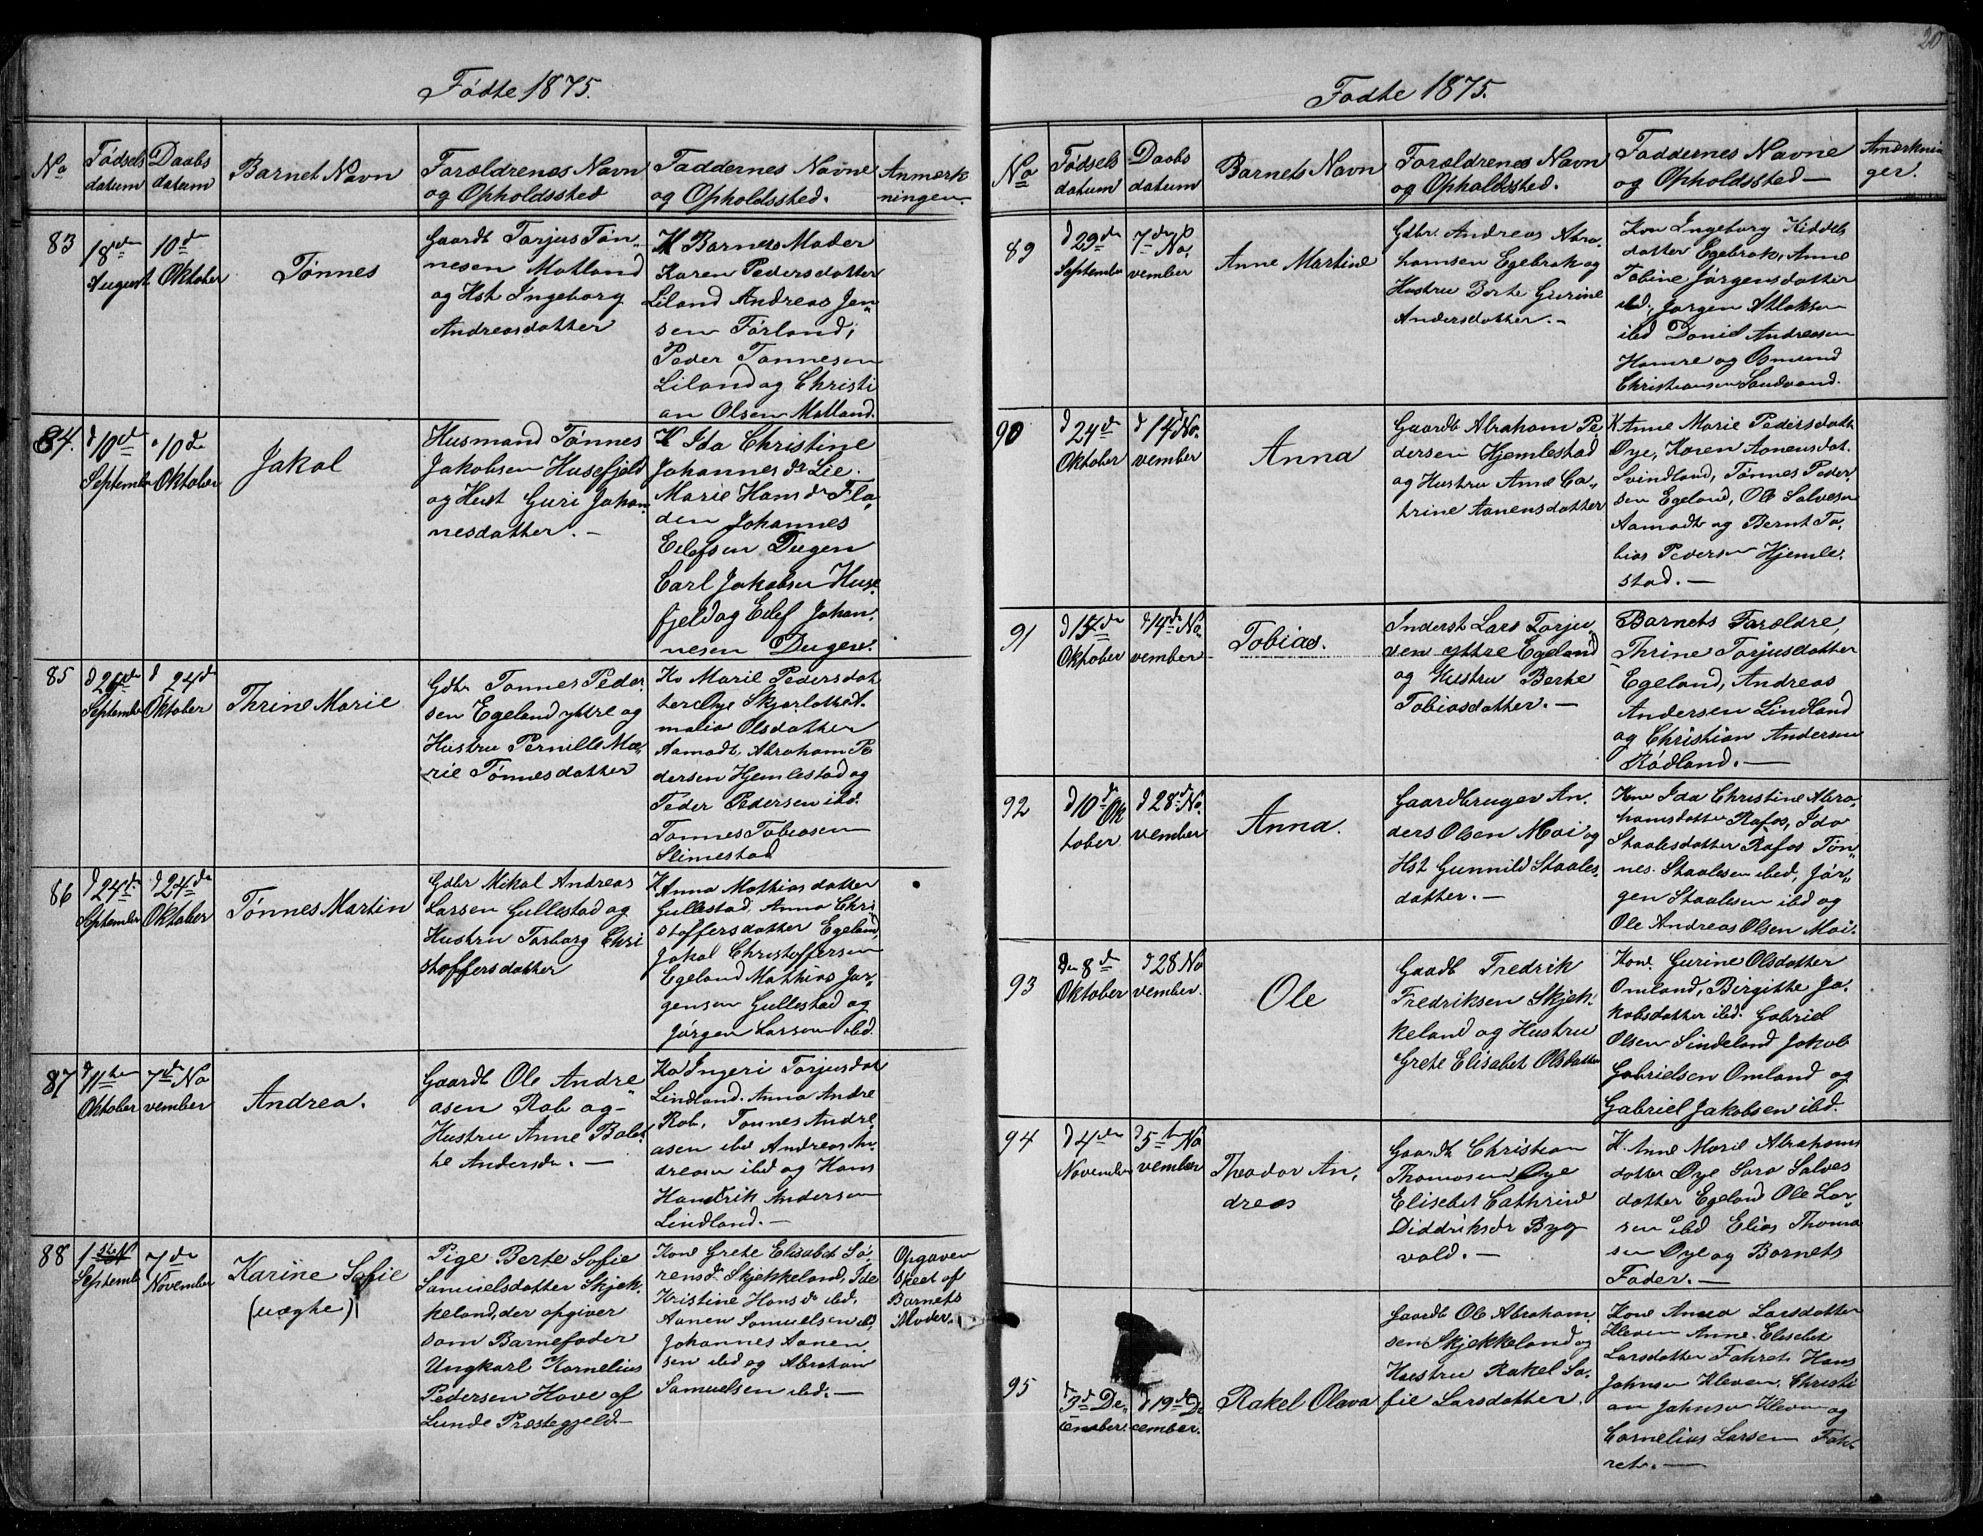 Fødte 1875.
No
Fødsels
datum
Daabs
datum
Barnet Navn
Forældrenes Navn
og Opholdssted
Faddernes Navne
og Opholdssted.
Anmærk
ningen
83
18de
August
10de
Oktober
Tønnes
Gaardb Torjus Tøn„
nesen Motland
og Hst Ingeborg
Andreasdatter
K Barnets Moder
Karen Pedersdatter
Liland Andreas Jen„
sen Førland,
Peder Tønnesen
Liland og Christi
an Olsen Motland.
84.
d 10de
September
10de
Oktober
Jakob
Husmand Tønnes
Jakobsen Husefjeld
og Hust Guri Johan„
nesdatter. —
K Ida Christine
Johannesdr Lie.
Marie Hansdr Fla„
den Johannes
Eilefsen Dugen
Carl Jakobsen Huse„
fjeld og Eilef Johan„
nesen Dugen.
85
September
d 24d
Oktober
Thrine Marie
Gdbr Tønnes Peder„
sen Egeland yttre og
Hustru Pernille Ma„
rie Tønnesdatter
Ko Marie Pedersdat
ter Øye
malia Olsdatter
Aamodt, Abraham Pe
dersen Hjemlestad og
Peder Pedersen ibd.
Tønnes Tobiasen
Slimestad
86
d 24d
September
d 24de
Oktober
Tønnes Martin
Gdbr Mikal Andreas
Larsen Gullestad og
Hustru Torborg Chri
stoffersdatter
K Anna Mathiasdatter
Gullestad, Anna Chri„
stoffersdatter Egeland,
Jakob Christoffersen
Egeland Mathias Jør„
gensen Gullestad og
Jørgen Larsen ibd.
87
d 11te
Oktober
7de No
vember
Andrea.
Gaardb Ole Andre„
asen Rob og
Hustru Anne Bol„
te Andersdr. —
Ko Ingeri Torjusdat
Lindland. Anna Andre
Rob, Tønnes Andre„
asen ibd Andreas An„
dreasen ibd og Hans
Hendrik Andersen
Lindland. —
88
September
7de
November
Karine Sofie
(uægte)
Pige Berte Sofie
Samuelsdatter Skjek„
keland, der opgiver
som Barnefader
Ungkarl Kornelius
Pedersen Hove af
Lunde Præstegjeld. —
Kone Grete Elisabet Sø„
rensd. Skjekkeland, Ide
Kristine Hansdr ibd.
Aanen Samuelsen ibd,
Johannes Aanen
sen ibd og Abraham
Samuelsen ibd. —
Opgaven
skeet af
Barnets
Moder.
20
Fødte 1875.
No
Fødsels
datum
Daabs
datum
Barnets Navn
Forældrenes Navn
og Opholdssted.
Faddernes Navne
og Opholdssted —
Anmærknin
ger.
89
d 29de
September
7de No„
vember
Anne Martine
Gdbr. Andreas Abra„
hamsen Egebrok og
Hustru Berte Gurine
Andersdatter. —
Kon Ingeborg Kiddels
datter Egebrok, Anne
Tobine Jørgensdatter
ibd, Jørgen Atlaksen
ibd Daniel Andreasen
Homre og Osmund
Christiansen Sandvand.
90
d 24de
Oktober
d 14d No.
vember
Anna
Gaardb Abraham Pe
dersen Hjemlestad
og Hustru Anne Ca„
trine Aanensdatter
K Anne Marie Pedersdatt
Øye, Karen Aanensdat.
Svindland, Tønnes Peder
sen Egeland, Ole Salvesen
Aamodt og Bernt To„
bias Pedersen Hjemle„
stad. —
91
d 15de
Oktober
d 14de No„
vember
Tobias.
Inderst Lars Torju„
sen yttre Egeland
og Hustru Berte
Tobiasdatter. —
Barnets Forældre,
Thrine Torjusdatter
Egeland, Andreas
Andersen Lindland
og Christian Andersen
Rødland. —
92
d 10d Ok
tober
d 28d No.
vember
Anna.
Gaardbruger An„
ders Olsen Moi og
Hst Gunnild Staales„
datter. —
Kone Ida Christine Abra„
hamsdatter Rafos, Ida
Staalesdatter Rafos Tøn„
nes Staalesen ibd, Jør„
gen Staalesen ibd og
Ole Andreas Olsen Moi.
93
den 8de
Oktober
d 28 No
vember.
Ole
Gaardb Fredrik
Fredriksen Skjek„
keland og Hustru
Grete Elisabet Olsdatter
Kone Gurine Olsdatter
Omland, Bergitte Ja„
kobsdatter ibd. Gabriel
Olsen Sindeland Jakob
Gabrielsen Omland og
Gabriel Jakobsen ibd.
94
d 4de
November
d 5te No
vember
Theodor An„
dreas
Gaardb Christian
Thomasen Øye
Elisebet Cathrine
Diddriksdr Byg
vold. —
K. Anne Marie Abrahams
datter Øye Sara Salves
datter Egeland Ole Lar„
sen ibd Elias Thoma
sen Øye og Barnets
Fader. —
95
3de De„
cember.
d 19de De
cember.
Rakel Olava
Gaardb Ole Abraham„
sen Skjekkeland og
Hustru Rakel So„
fie Larsdatter.
Kone Anna Larsdatter
Kleven Anne Elisebet
Larsdatter Fahret, Hans
Johnsen Kleven, Christi
an Johnsen Kleven og
Cornelius Larsen Fah„
ret. —